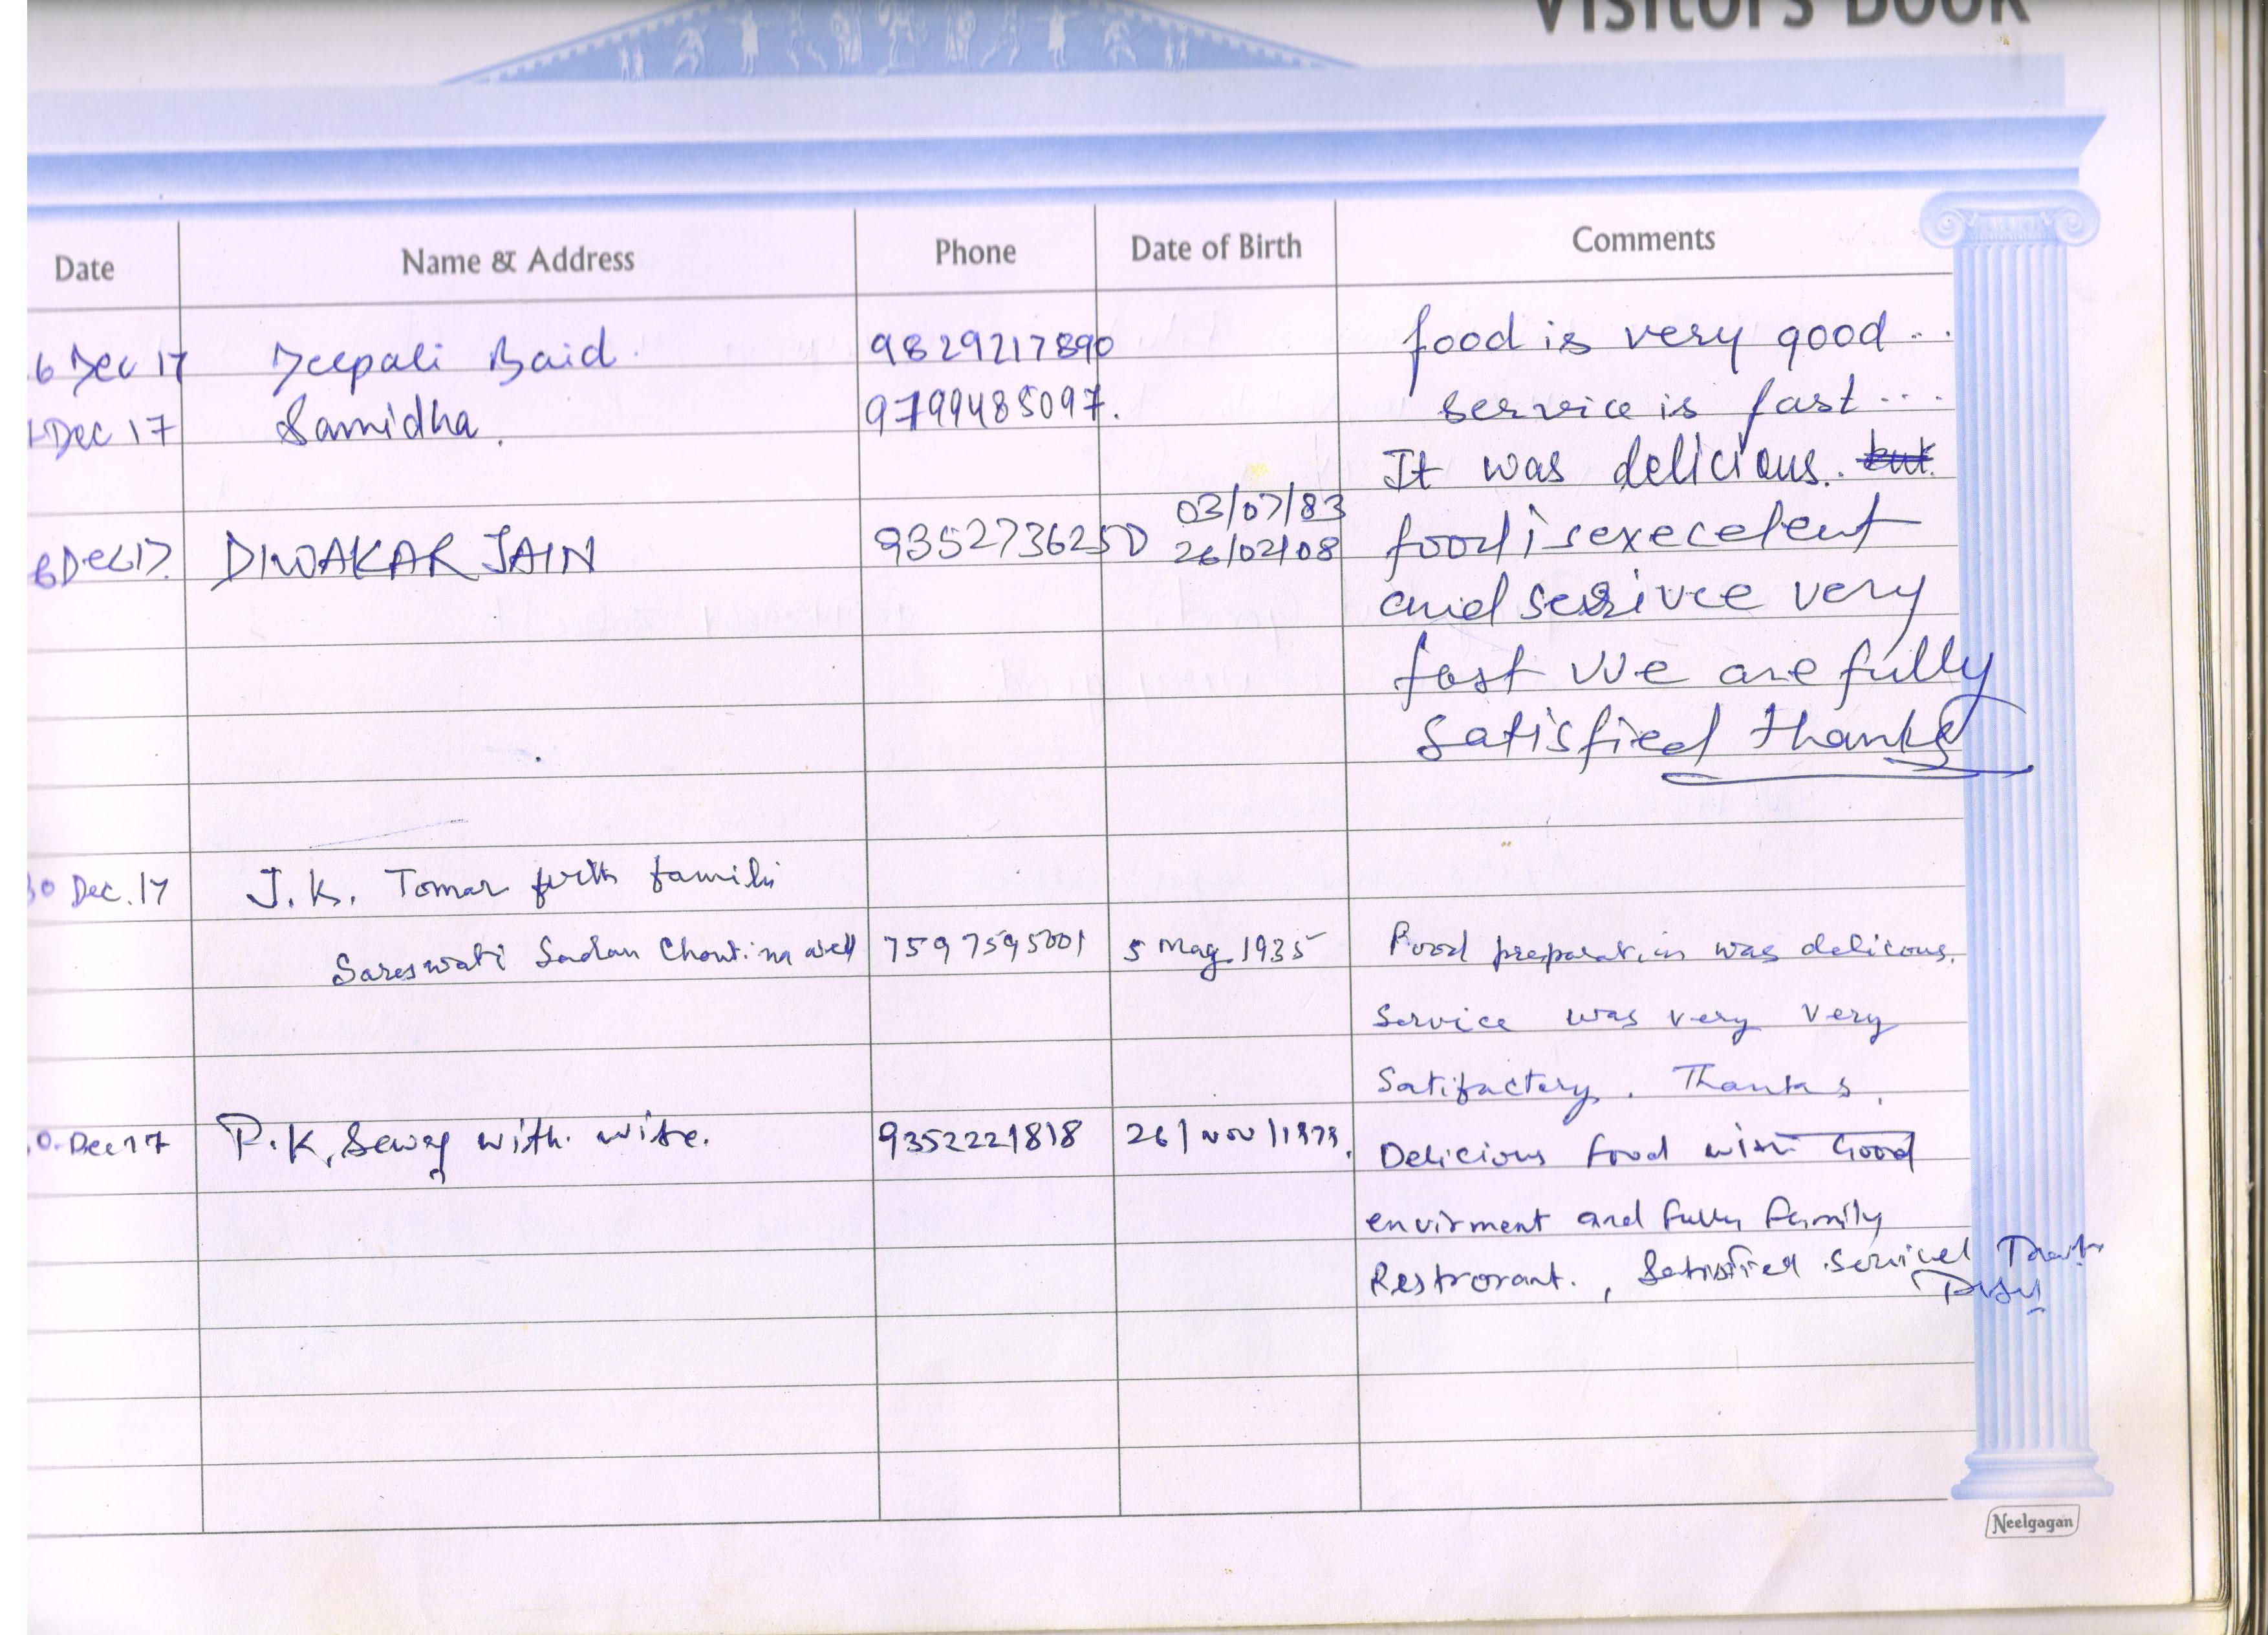 Visitors Book
Date Name & Address Phone Date of Birth Comments
6 Dec 17 Deepali Baid 9829217890 food is very good ..
Dec 17 Samidha. 9799485097. service is fast ...
It was delicious. but
03/07/83
6 Dec 17. DIWAKAR JAIN 9352736250 26/02/08 food is execelent
and serivce very
fast we are fully
satisfied thanks
30 Dec. 17 J. K. Tomar with famili
Sareswati Sadan 7597595001 5 May 1935 Food preparation was delicous.
Service was very very
Satifactory. Thanks.
0. Dec 17 P. K, with. wife. 9352221818 26/Nov/1979. Delicious food with Good
envirment and fully family
Restrorant. , Satisfied
Neelgagan